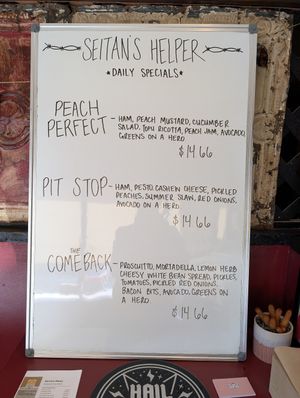 SEITAN'S HELPER
★DAILY SPECIALS★
PEACH PERFECT - HAM, PEACH MUSTARD, CUCUMBER
SALAD, TOFU RICOTTA, PEACH JAM, AVOCADO,
GREENS ON A HERO
$14.66
PIT STOP - HAM, PESTO, CASHEW CHEESE, PICKLED
PEACHES, SUMMER SLAW, RED ONIONS,
AVOCADO ON A HERO
$14.66
THE
COMEBACK - PROSCUITTO, MORTADELLA, LEMON HERB
CHEESY WHITE BEAN SPREAD, PICKLES,
TOMATOES, PICKLED RED ONIONS,
BACON BITS, AVOCADO, GREENS ON
A HERO
$14.66
HAIL